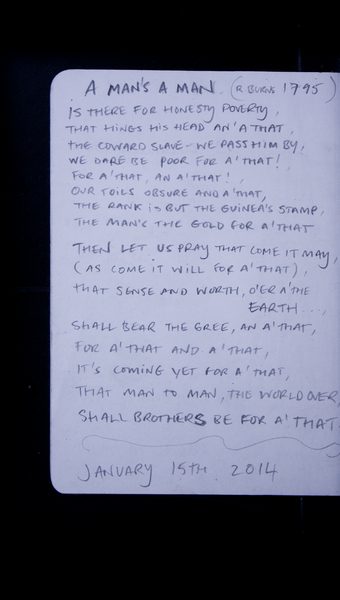 A MAN'S A MAN. (R BURNS 1795)
IS THERE FOR HONESTY POVERTY,
THAT HINGS HIS HEAD AN' A THAT,
THE COWARD SLAVE - WE PASS HIM BY,
WE DARE BE POOR FOR A' THAT!
FOR A' THAT, AN A' THAT!,
OUR TOILS OBSURE AND A' THAT,
THE RANK IS BUT THE GUINEA'S STAMP,
THE MAN'S THE GOLD FOR A' THAT
THEN LET US PRAY THAT COME IT MAY,
(AS COME IT WILL FOR A' THAT),
THAT SENSE AND WORTH, O'ER A' THE
EARTH ...,
SHALL BEAR THE GREE, AN A' THAT,
FOR A' THAT AND A' THAT,
IT'S COMING YET FOR A' THAT,
THAT MAN TO MAN, THE WORLD OVER,
SHALL BROTHERS BE FOR A' THAT
JANUARY 15TH 2014